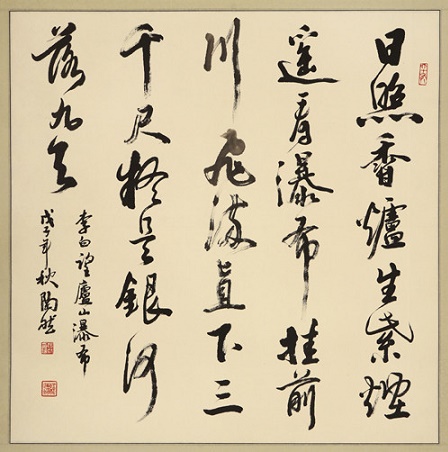 日照香爐生紫煙
遙看瀑布挂前
川飛流直下三
千尺疑是銀河
落九天
李白望廬山瀑布
戊子年秋陶然